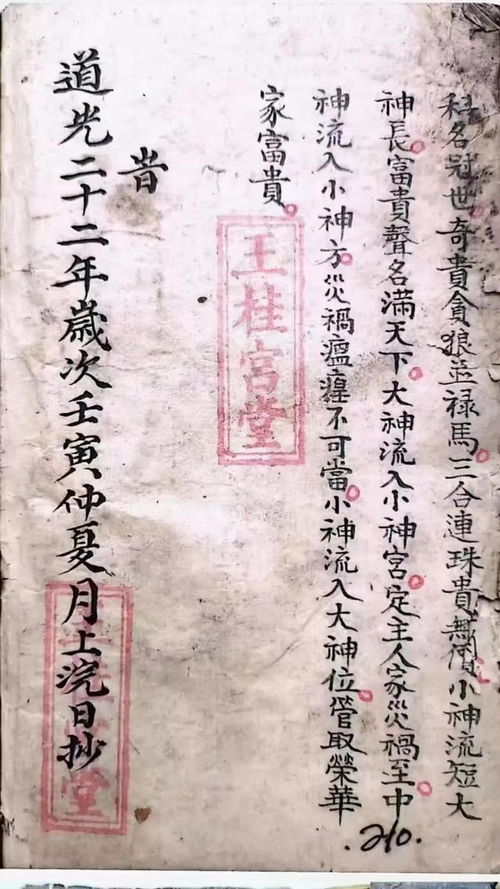 科名冠世奇貴貪狼並禄馬三合連珠貴無價小神流短大
神長富貴聲名滿天下大神流入小神宮定主人家災禍至中
神流入小神方災禍瘟㾮不可當小神流入大神位管取榮華
家富貴
王桂宮堂
昔
道光二十二年歲次壬寅仲夏月上浣日抄
堂
210.